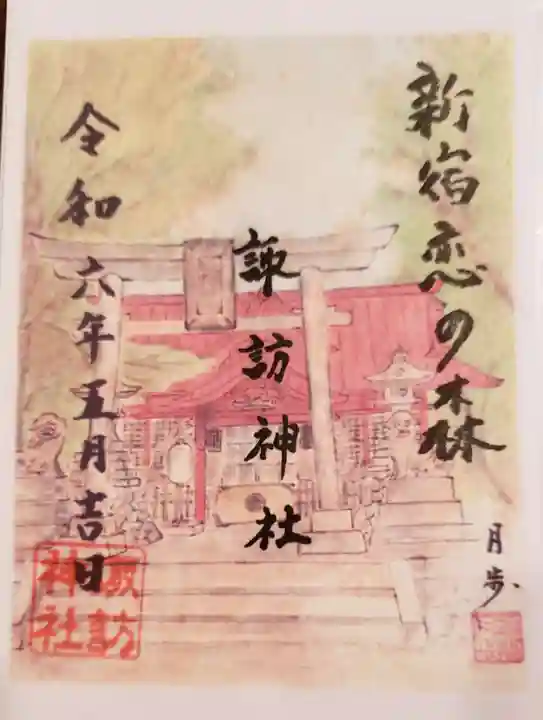 新宿恋の森
諏訪神社
令和六年五月吉日
月歩
諏訪
神社